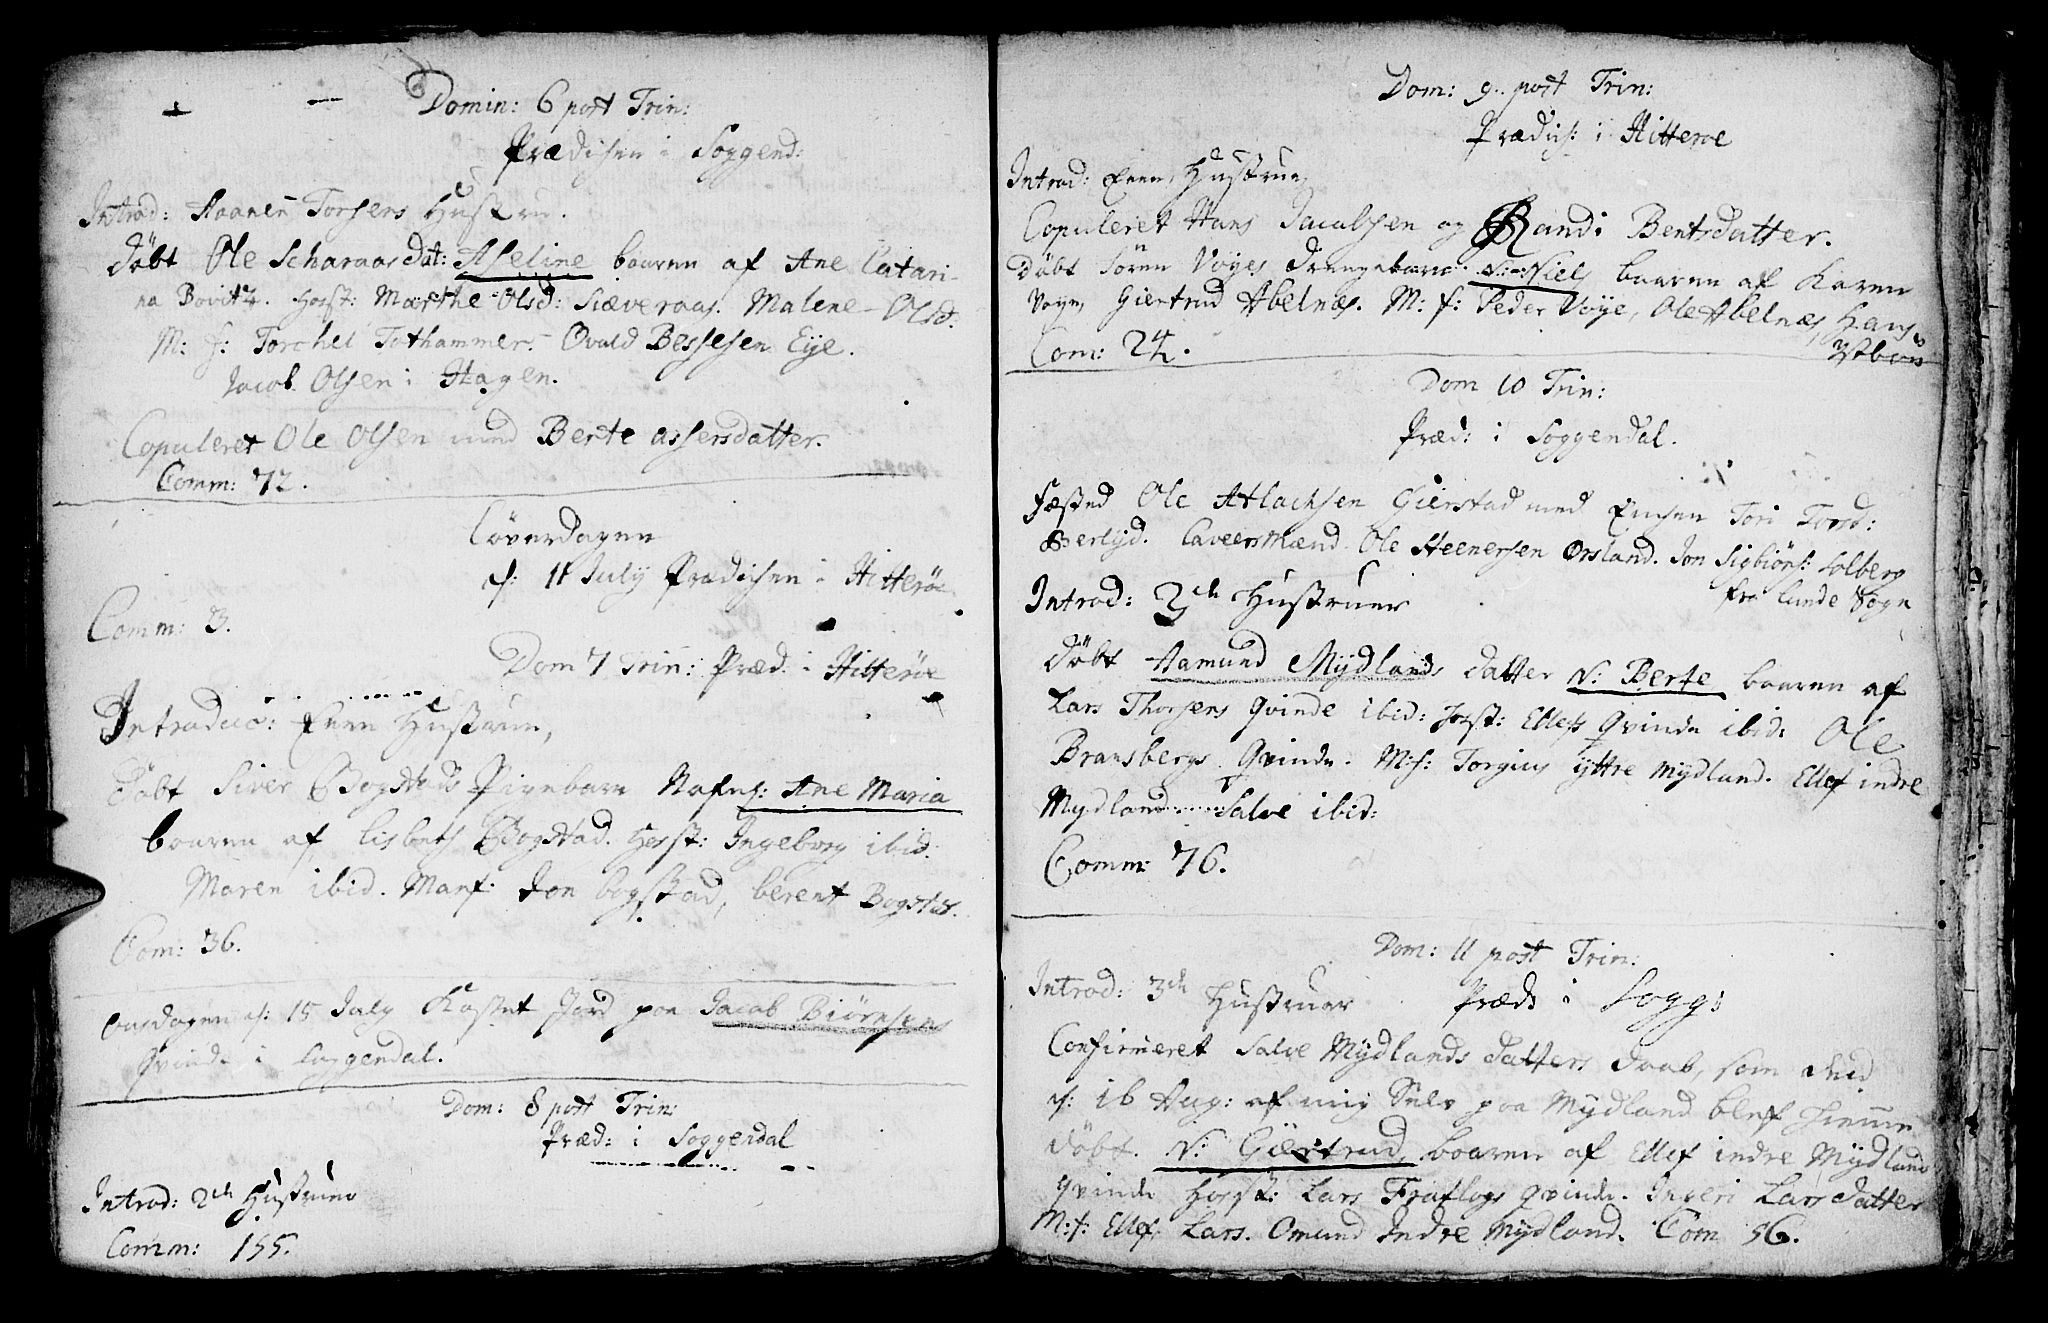 Domin: 6 post Trin:
Prædichen i Soggend:
Introd: Aanen Torsens Hustru.
Döbt Ole Scharaas Dat: Aseline baaren af Ane Catari-
na Bovitz. Host: Marthe Olsd: Siæveraas. Malene Olsd.
M: f: Torchel Tothammer. Ovald Bessesen Eye.
Jacob Olsen i Hagen.
Copuleret Ole Olsen med Berte Assersdatter.
Comm: 72.
Löverdagen
d: 11 July Prædichen i Hitteröe
Comm: 3.
Dom 7 Trin: Præd i Hitteröe
Introduc: Een Hustrue,
Döbt Siver Bogstads Pigebarn Nafnl: Ane Maria
baaren af Lisbeth Bogstad. Host: Ingeborg ibid.
Maren ibid. Manf. Jon bogstad, berent Bogstad.
Com: 36.
Onsdagen d: 15 July Kastet Jord paa Jacob Biörnsens
Qvinde i Soggendal.
Dom: 8 post Trin:
Præd: i Soggendal
Introd: 2de Hustruer
Comm: 155.
Dom: 9 post Trin:
Prædich: i Hitteroe
Introd: Een Hustrue,
Copuleret Hans Jacobsen og Randi Bentsdatter.
Döbt Sören Voyes Drengebarn N: Niels baaren af Karen
Voye, Giertrud Abelnæs. M: f: Peder Voye, Ole Abelnæs, Hans
Com: 24.
Dom 10 Trin:
Præd: i Soggendal.
Fæsted Ole Atlachsen Gierstad med Enchen Tori Tored:
Berlyd. Caveersmænd Ole Steenersen Orsland. Jon Sigbiöns: Solberg
fra Lunde Sogn
Introd: 3de Hustruer
Döbt Aamund Mydlands Datter N: Berte baaren af
Lars Thorsens Qvinde ibid: Host: Ellefs Qvinde ibid: Ole
Bransbergs Qvinde. M:f: Torgius yttre Mydland. Ellef indre
Mydland. Salve ibid:
Comm: 76.
Dom: 11 post Trin:
Introd: 3de Hustruer Præd i Sogg:
Confirmeret Salve Mydlands Datters Daab, som
d: 16 Aug: af mig Selv paa Mydland blef hiemme
döbt. N: Giertrud, baaren af Ellef indre Mydlands
qvinde Host: Lars Fraflogs qvinde. Ingeri Lars Datter
M:f: Ellef, Lars. Omund Indre Mydland. Com 56.